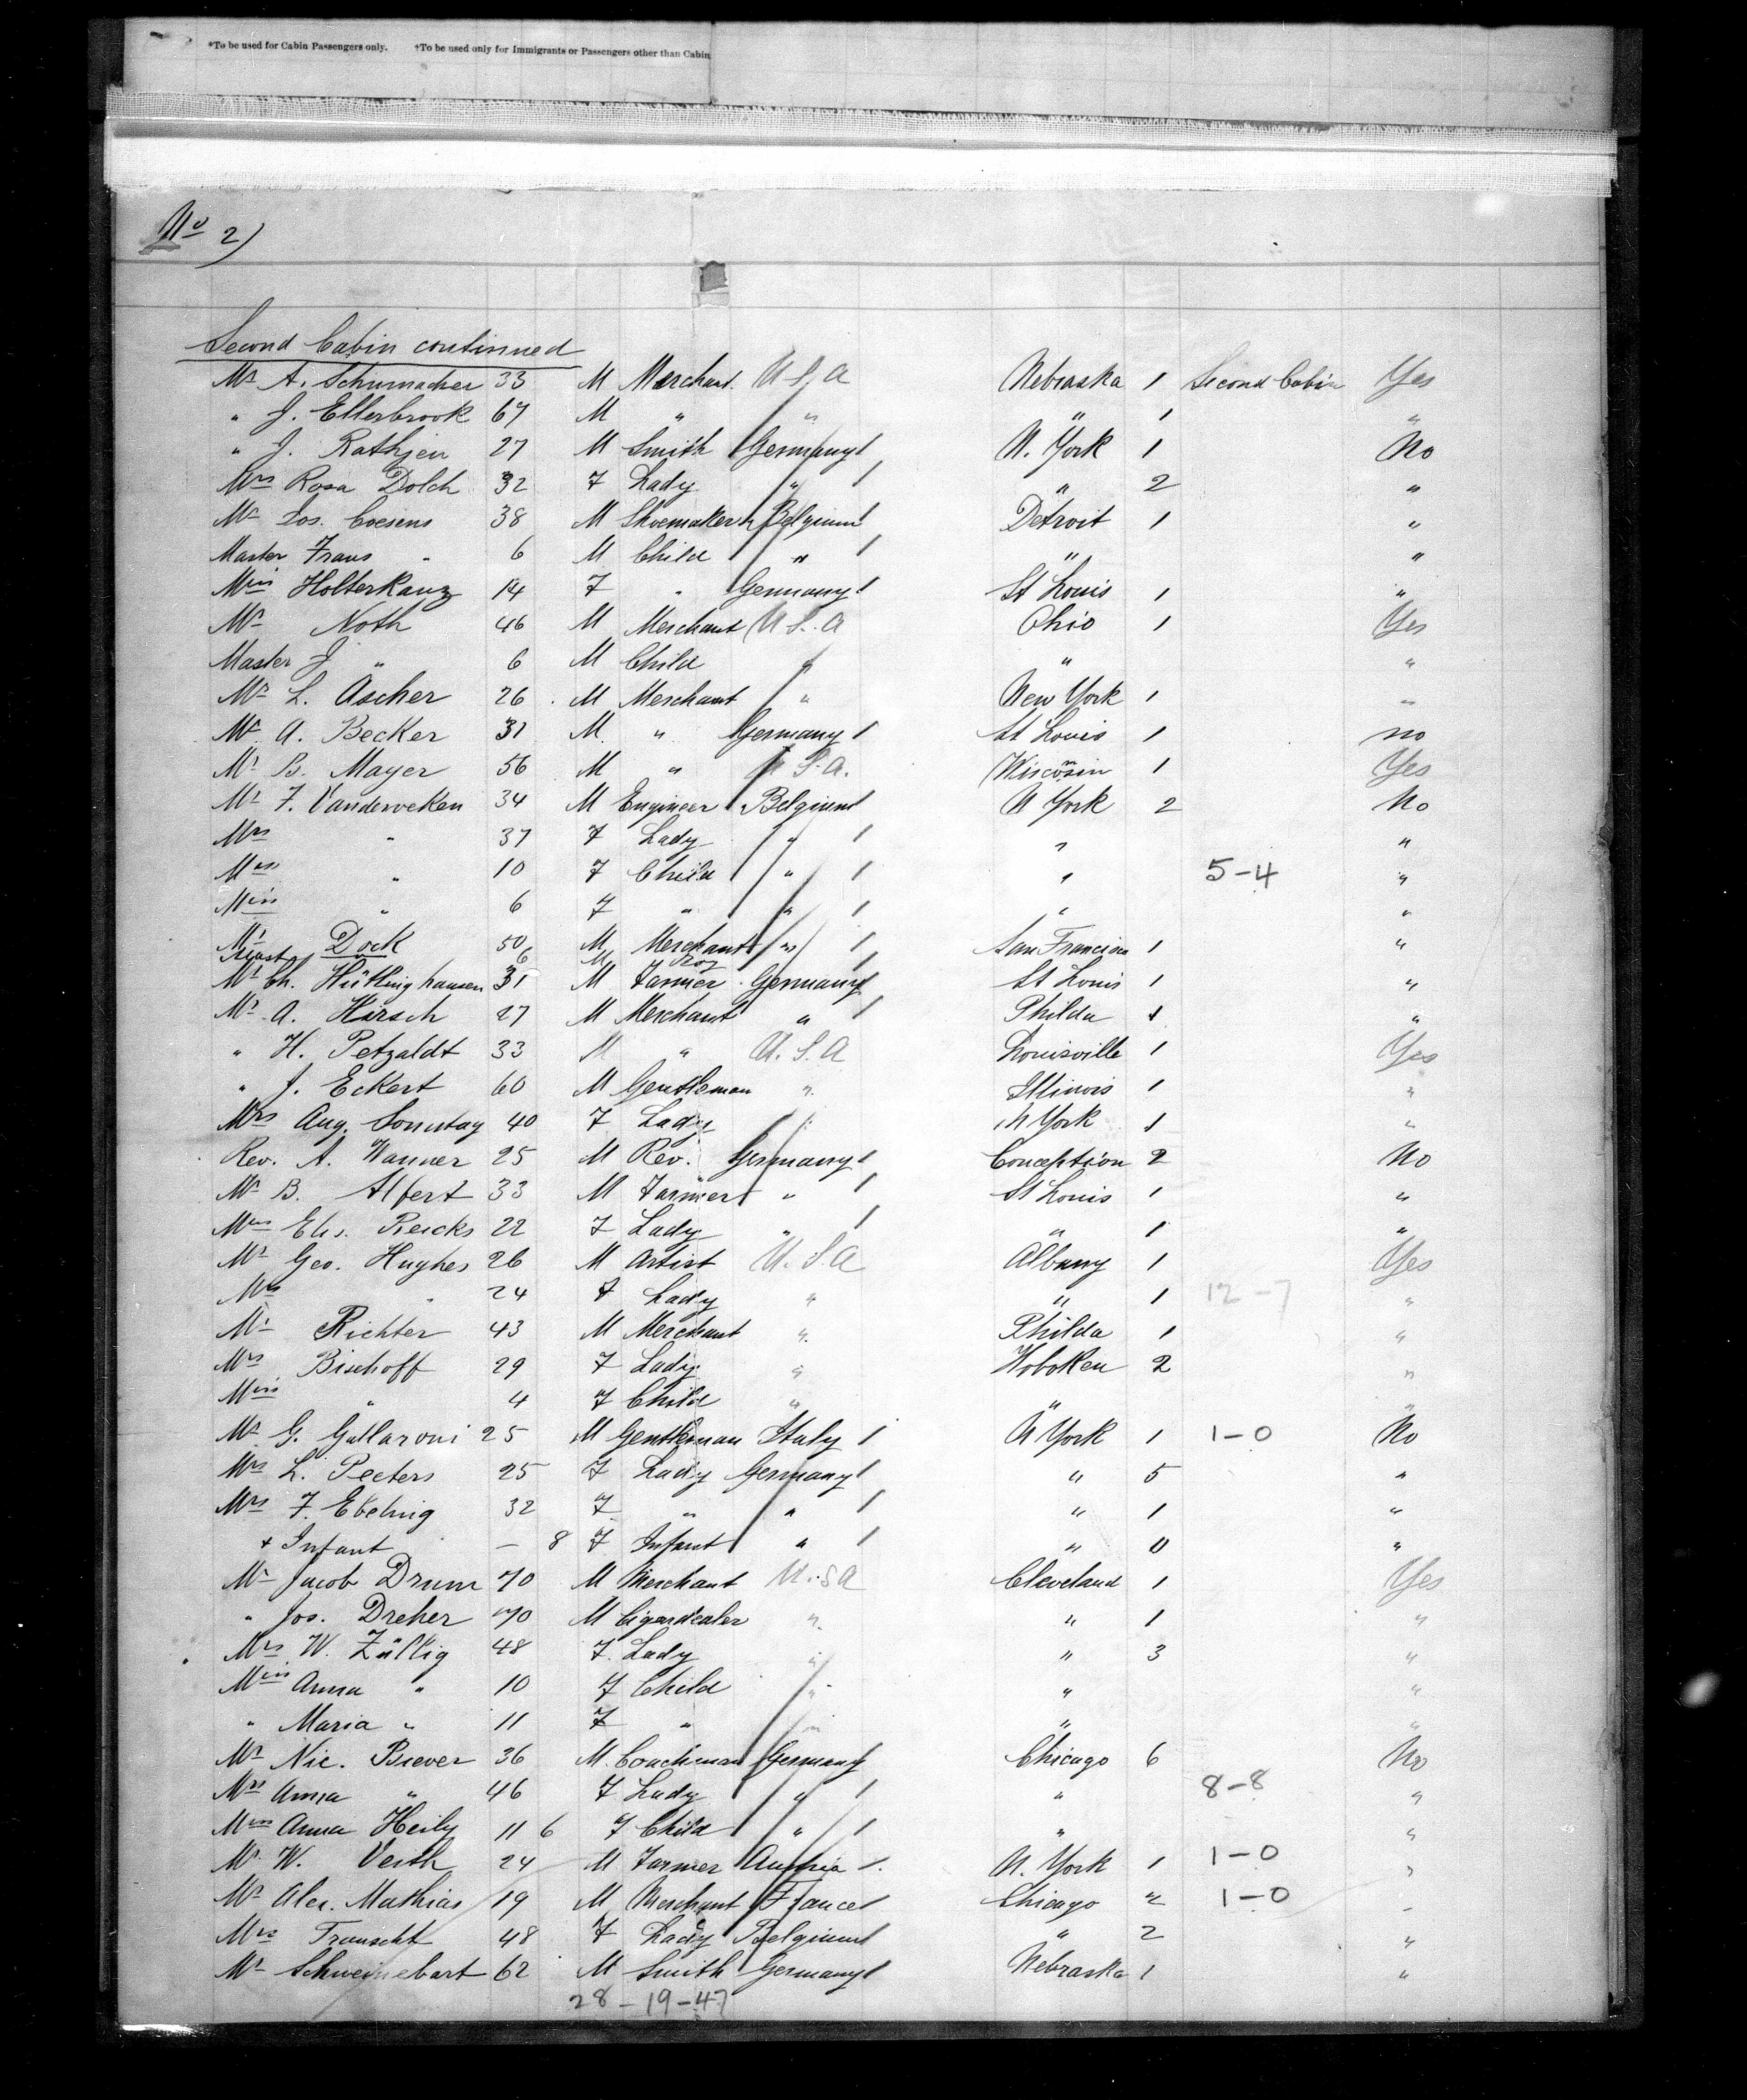 *To be used for Cabin Passengers only. †To be used only for Immigrants or Passengers other than Cabin
No 2)
Second Cabin continued
Mr A. Schumacher 33 M Merchant U.S.A Nebraska 1 Second Cabin Yes
" J. Ellerbrook 67 M " " " 1 "
" J. Rathjen 27 M Smith Germany 1 N. York 1 No
Mrs Rosa Dolch 32 F Lady " 1 " 2 "
Mr Jos. Coesens 38 M Shoemaker Belgium 1 Detroit 1 "
Master Frans " 6 M Child " 1 " "
Miss Holterkanz 14 F " Germany 1 St Louis 1 "
Mr Noth 46 M Merchant U.S.A Ohio 1 Yes
Master J " 6 M Child " " "
Mr L. Ascher 26 M Merchant " New York 1 "
Mr A. Becker 31 M " Germany 1 St Louis 1 no
Mr B. Mayer 56 M " U.S.A. Wisconsin 1 Yes
Mr F.Ванderveken 34 M Engineer Belgium 1 N York 2 No
Mrs " 37 F Lady " 1 " "
Miss " 10 F Child " 1 " 5-4 "
Miss " 6 F " " 1 " "
Mr Dock 50 M Merchant " 1 San Francisco 1 "
6 M 1
Mr Ch. Hütlinghausen 31 M Farmer Germany 1 St Louis 1 "
Mr A. Hirsch 27 M Merchant " 1 Philda 1 "
" H. Petzaldt 33 M " U.S.A Louisville 1 Yes
" J. Eckert 60 M Gentleman " Illinois 1 "
Mrs Aug. Sonntag 40 F Lady " N York 1 "
Rev. A. Wanner 25 M Rev. Germany 1 Conception 2 No
Mr B. Alfert 33 M Farmer " 1 St Louis 1 "
Miss Elis. Reicks 22 F Lady " 1 " 1 "
Mr Geo. Hughes 26 M Artist U.S.A Albany 1 Yes
Mrs " 24 F Lady " " 1 12-7 "
Mr Richter 43 M Merchant " Philda 1 "
Mrs Bischoff 29 F Lady " Hoboken 2 "
Miss " 4 F Child " " "
Mr G. Gallaroni 25 M Gentleman Italy 1 N York 1 1-0 No
Mrs L. Peeters 25 F Lady Germany 1 " 5 "
Mrs F. Ebeling 32 F " " 1 " 1 "
+ Infant - 8 F Infant " 1 " 0 "
Mr Jacob Drum 70 M Merchant U.S.A Cleveland 1 Yes
" Jos. Dreher 70 M Cigardealer " " 1 "
Mrs W. Züllig 48 F. Lady " " 3 "
Miss Anna " 10 F Child " " "
" Maria " 11 F " " " "
Mr Nic. Biever 36 M. Coachman Germany 1 Chicago 6 No
Mrs Anna " 46 F Lady " 1 " 8-8 "
Miss Anna Heily 11 6 F Child " 1 " "
Mr W. Veith 24 M Farmer Austria 1. N. York 1 1-0 "
Mr Alex. Mathias 19 M Merchant France 1 Chicago 2 1-0 "
Mrs Transcht 48 F Lady Belgium 1 " 2 "
Mr Schweinebart 62 M Smith Germany 1 Nebraska 1 "
28-19-47